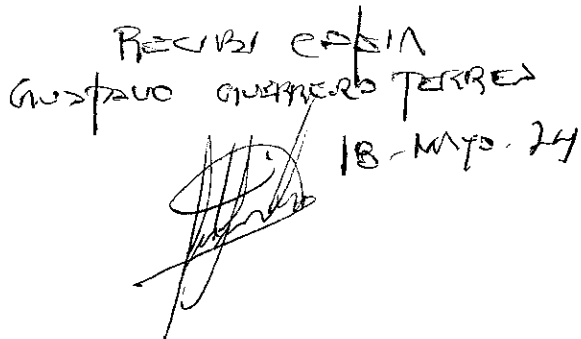 RECIBI COPIA
GUSTAVO GUERRERO TERRES
18-MAYO-24